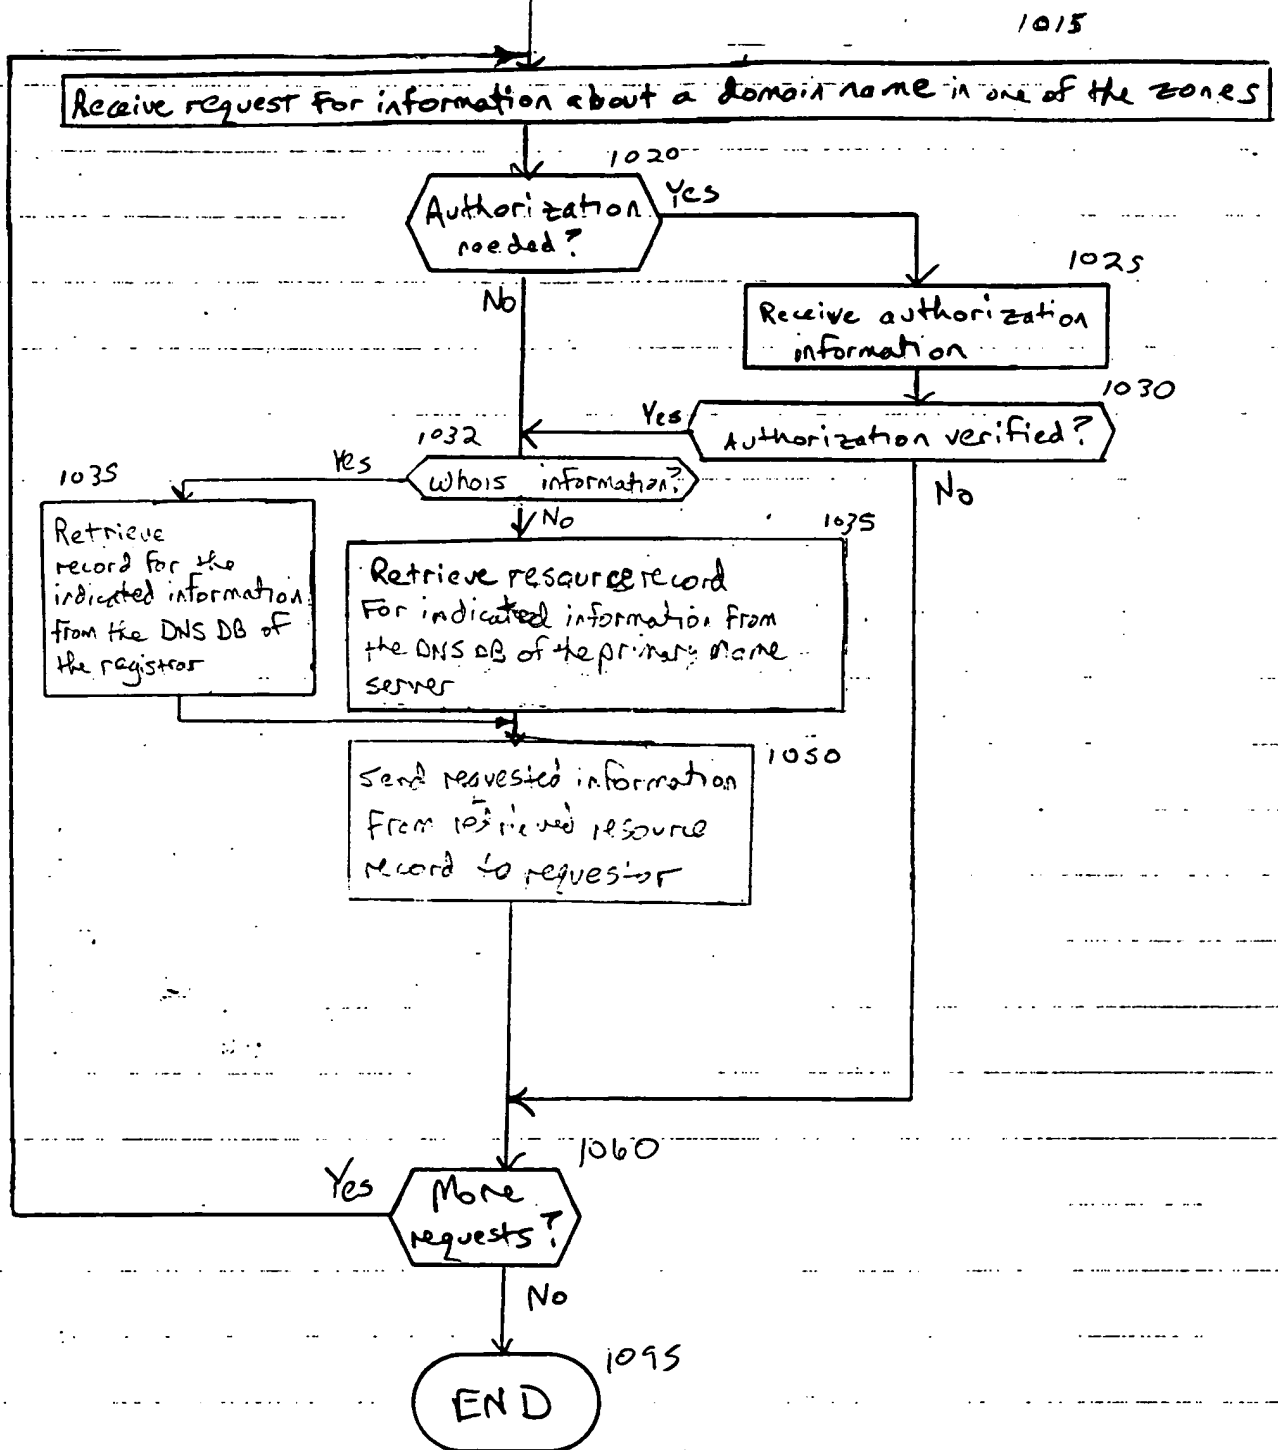 1015
Receive request for information about a domain name in one of the zones
1020
Authorization
needed?
Yes
No
1025
Receive authorization
information
1030
Authorization verified?
Yes
No
1032
whois information?
Yes
No
1035
Retrieve
record for the
indicated information
from the DNS DB of
the registrar
1035
Retrieve resource record
For indicated information from
the DNS DB of the primary name
server
1050
Send requested information
From retrieved resource
record to requestor
1060
More
requests?
Yes
No
1095
END